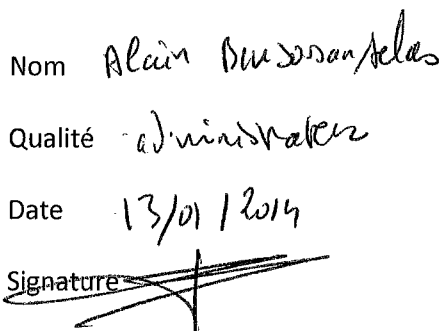 Nom Alain Bensoussan Selas
Qualité administrateur
Date 13/01/2014
Signature